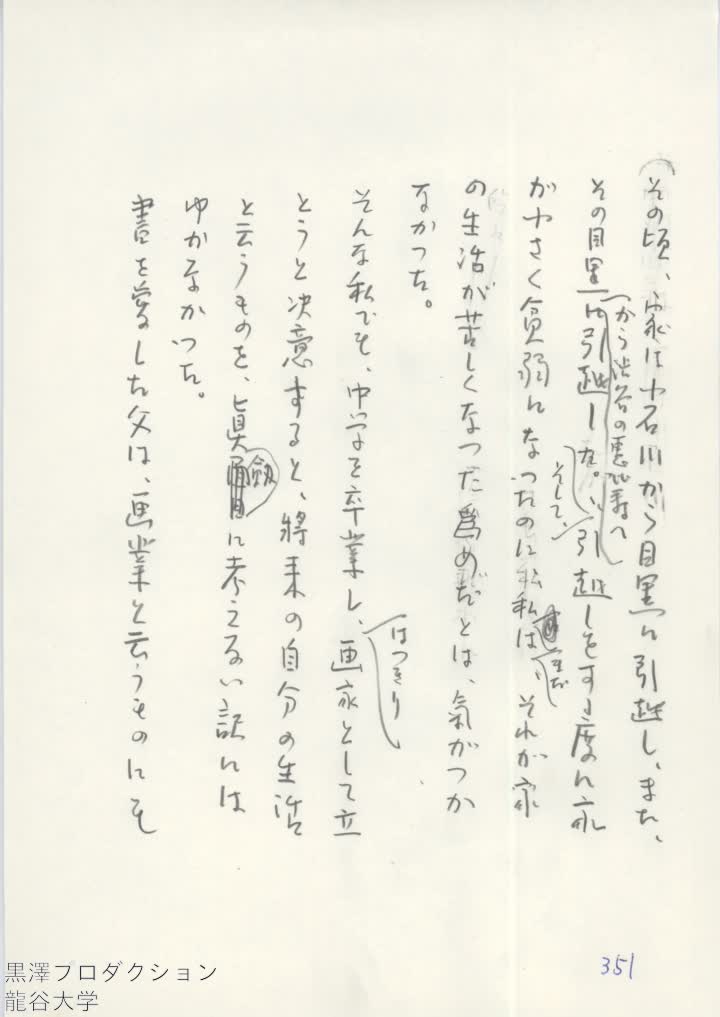 その頃、家は小石川から目黒に引越し、また、
その目黒から渋谷の恵比寿へ引越した。そして、引越しをする度に家
がやさく貧弱になつたのに私は、まだ、それが家
の生活が苦しくなつた為めだとは、氣がつか
なかつた。
そんな私でも、中学を卒業し、はつきり画家として立
とうと決意すると、將来の自分の生活
と云うものを、眞劔に考えない訳には
ゆかなかつた。
書を愛した父は、画業と云うものにも
351
黒澤プロダクション
龍谷大学